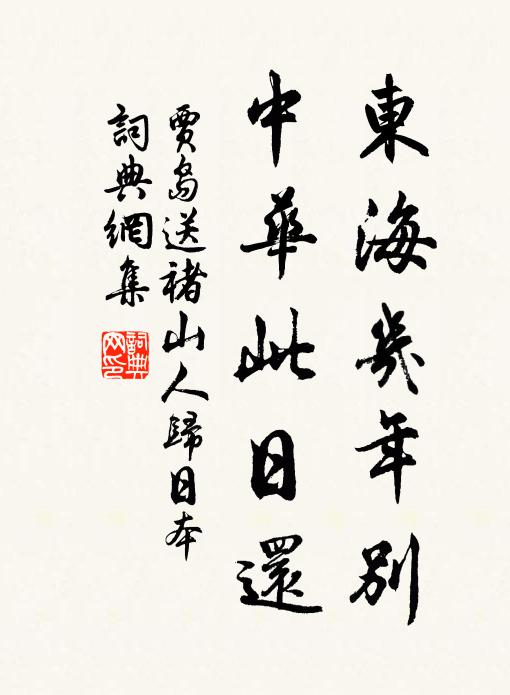 東海幾年別
中華此日還
賈島送褚山人歸日本
詞典網集
詞典網印